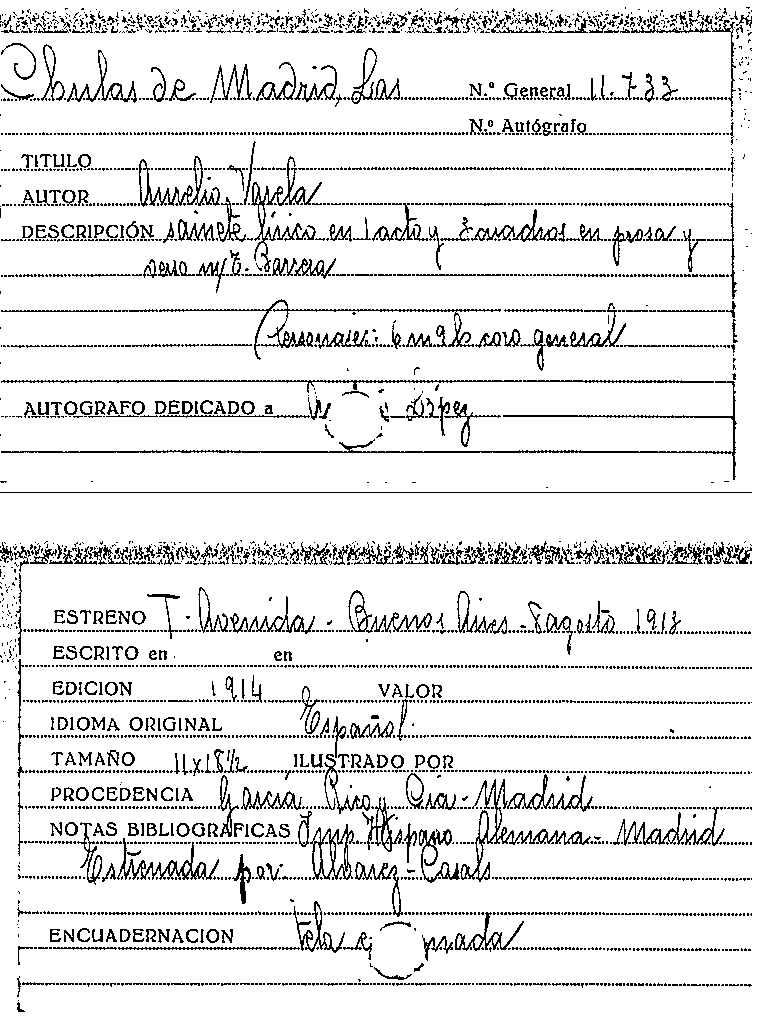 Chulas de Madrid, Las N.º General 11.733
N.º Autógrafo
TITULO
AUTOR Aurelio Varela
DESCRIPCIÓN sainete lírico en 1 acto y 3 cuadros en prosa y
verso m/ T. Barrera
Personajes: 6 m 9 h coro general
AUTOGRAFO DEDICADO a López
ESTRENO T. Avenida - Buenos Aires - 8 agosto 1913
ESCRITO en en
EDICION 1914 VALOR
IDIOMA ORIGINAL Español.
TAMAÑO 11x18½ ILUSTRADO POR
PROCEDENCIA García Rico y Cía - Madrid
NOTAS BIBLIOGRAFICAS Imp. Hispano Alemana - Madrid
Estrenada por: Albarez - Casals
ENCUADERNACION tela